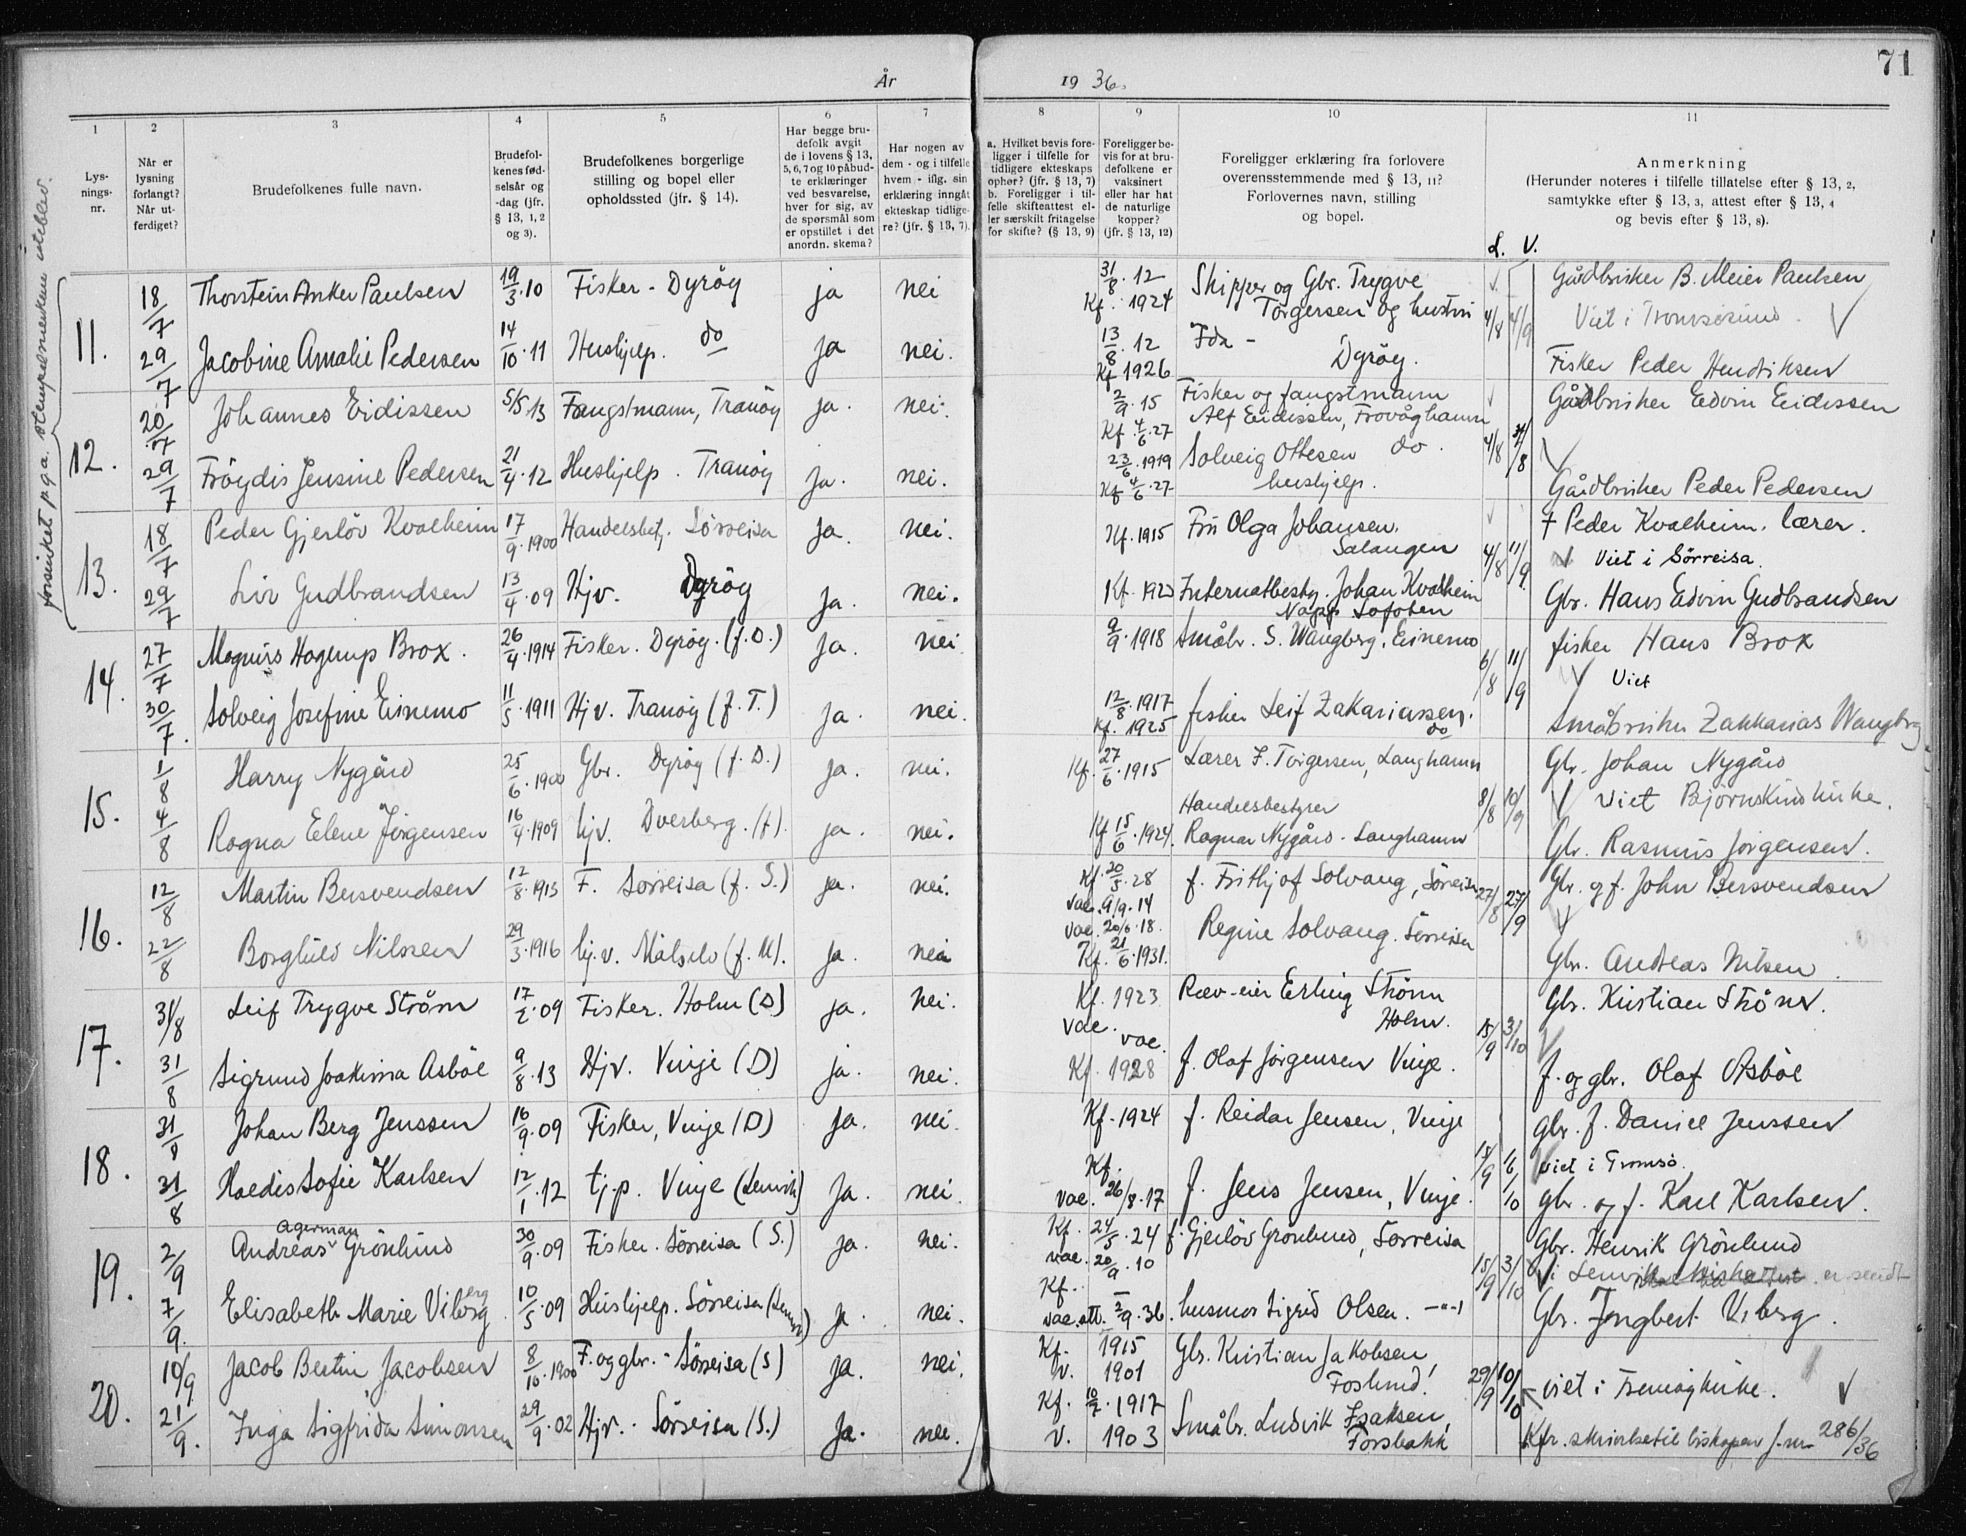 71
År 1936.
1 2 3 4 5 6 7 8 9 10 11
Lysningsnr.
Når er lysning forlangt? Når utferdiget?
Brudefolkenes fulle navn.
Brudefolkenes fødselsår og -dag (jfr. § 13, 1, 2 og 3).
Brudefolkenes borgerlige stilling og bopel eller opholdssted (jfr. § 14).
Har begge brudefolk avgit de i lovens § 13, 5, 6, 7 og 10 påbudte erklæringer ved besvarelse, hver for sig, av de spørsmål som er opstillet i det anordn. skema?
Har nogen av dem - og i tilfelle hvem - iflg. sin erklæring inngåt ekteskap tidligere? (jfr. § 13, 7).
a. Hvilket bevis foreligger i tilfelle for tidligere ekteskaps ophør? (jfr. § 13, 7)
b. Foreligger i tilfelle skifteattest eller særskilt fritagelse for skifte? (§ 13, 9)
Foreligger bevis for at brudefolkene er vaksinert eller har hat de naturlige kopper? (jfr. § 13, 12)
Foreligger erklæring fra forlovere overensstemmende med § 13, 11? Forlovernes navn, stilling og bopel.
Anmerkning
(Herunder noteres i tilfelle tillatelse efter § 13, 2, samtykke efter § 13, 3, attest efter § 13, 4 og bevis efter § 13, 8).
L. V.
forsinket p.g.a. stempelmerkene uteblev.
11. 18/7 Thorstein Anker Paulsen 19/3.10 Fisker - Dyröy ja nei 31/8.12 Kf. 1924 Skipper og Gbr. Trygve Torgersen og hustru 4/8 4/9 Gårdbruker B. Meier Paulsen
Viet i Tromsøsund.
29/7 Jacobine Amalie Pedersen 14/10.11 Hushjelp. do ja nei. 13/8.12 Kf 1926 Ida - Dyröy. Fisker Peder Hendriksen
12. 20/7 Johannes Eidissen 5/5.13 Fangstmann, Tranöy ja. nei. 2/9.15 Kf. 4/6.27 Fisker og fangstmann Alf Eidissen, Frovåghamn 4/8 Gårdbruker Edvin Eidissen
29/7 Fröydis Jensine Pedersen 21/4.12 Hushjelp. Tranöy ja. nei. 23/6.1919 Kf 4/6.27 Solveig Ottesen do. hushjelp. Gårdbruker Peder Pedersen
13. 18/7 Peder Gjerlöv Kvalheim 17/9.1900 Handelsbet, Sörreisa ja. nei. Kf. 1915 Fru Olga Johansen. Salangen 4/8 11/9 † Peder Kvalheim. lærer.
Viet i Sörreisa.
29/7 Liv Gudbrandsen 13/4.09 Hjv. Dyröy ja. nei. Kf. 1923 Internatbesty. Johan Kvalheim Napp Lofoten Gbr. Hans Edvin Gudbrandsen
14. 27/7 Magnus Hagerup Brox. 26/4.1914 Fisker. Dyröy. (f. D.) ja. nei 9/9.1918 Småbr. S. Wangberg, Einemo 6/8 11/9 fisker Hans Brox
Viet
30/7. Solveig Josefine Einemo 11/5.1911 Hjv. Tranöy (f. T.) ja. nei. 12/8.1917 Kf. 1925 fisker Leif Zakariassen. do Småbruker Zakkarias Wangberg
15. 1/8 Harry Nygård 25/6.1900 Gbr. Dyröy (f. D.) ja. nei. Kf. 27/6.1915 Lærer F. Torgersen, Langhamn 8/8 10/9 Gbr. Johan Nygård
viet Björnskinds kirke.
4/8 Ragna Elene Jörgensen 16/4.1909 hjv. Dverberg. (f). ja. nei. Kf 15/6.1924. Handelsbestyrer Ragnar Nygård - Langhamn Gbr. Rasmus Jörgensen.
16. 12/8 Martin Bersvendsen 12/8.1913 F. Sörreisa (f. S.) ja. nei. Kf. 20/5.28 vac. 9/9.14 f. Frithjof Solvang, Sörreisa 27/8 27/9 Gbr. og f. John Bersvendsen
22/8 Borghild Nilssen 29/3.1916 hj.v. Målselv (f. M). ja. nei vac. 20/6.18. Kf. 21/6.1931. Regine Solvang. Sörreisa Gbr. Andreas Nilsen.
17. 31/8 Leif Trygve Ström 17/2.09 Fisker. Holm (D) ja. nei. Kf. 1923 vac. Ræv-eier Erling Ström Holm. 15/9 3/10 Gbr. Kristian Ström.
31/8 Sigrund Joakima Asböe 9/8.13 Hjv. Vinje (D) ja. nei. vac. Kf. 1928 f. Olaf Jörgensen Vinje. f. og gbr. Olaf Asböe
18. 31/8 Johan Berg Jenssen 16/9.09 Fisker, Vinje (D) ja. nei. Kf. 1924 f. Reidar Jensen, Vinje gbr. f. Daniel Jenssen
viet i Tromsö.
31/8 Haldis Sofie Karlsen 12/1.12 tj.p. Vinje (Lenvik) ja. nei. Kf. vac. 26/8.17 f. Jens Jensen, Vinje. gbr. og f. Karl Karlsen.
19. 2/9 Andreas Agerman Grönlund 30/9.09 Fisker. Sörreisa (S.) ja. nei. Kf. 24/5.24 vac. 20/9.10 f. Gjerlöv Grönlund, Sörreisa 15/9 3/10 Gbr. Henrik Grönlund
i Lenvik er sendt
7/9. Elisabeth Marie Viberg 10/5.09 Hushjelp. Sörreisa (Lenvik) ja. nei. Kf. - vac.att. 2/9.36. husmor Sigrid Olsen. -"- Gbr. Ingbert Viberg.
20. 10/9 Jacob Bertin Jacobsen 8/10.1900 F. og gbr. - Sörreisa (S) ja. nei. Kf. 1915 v. 1901 Gbr. Kristian Jakobsen, Foslund. 29/9 10/10 viet i Tranöy kirke.
21/9. Inga Sigfrida Simonsen 29/9.02 Hjv. - Sörreisa (S.) ja. nei. Kf. 10/7.1917 v. 1903 Småbr. Ludvik Isaksen, Forsbakk Kfr. skrivelse til biskopen J.nr 286/36